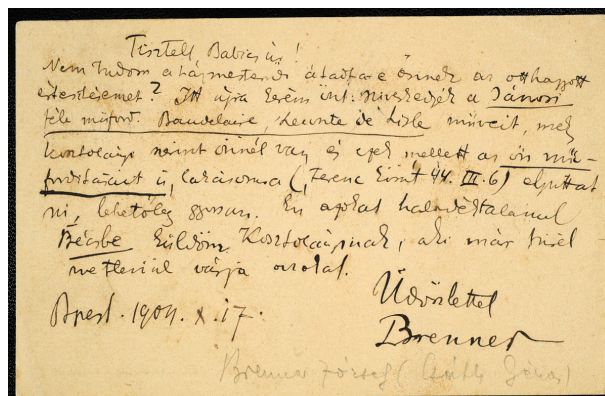 Tisztelt Babics úr!
Nem tudom a házmesterné átadta-e önnek az otthagyott
értesítésemet? Itt újra kérem önt: szíveskedjék a Jánosi
féle műford. Baudelaire, Leconte de Lisle műveit, mely
Kosztolányi szerint önnél van és ezek mellett az ön mű-
fordításait is, lakásomra (Ferenc körút 44. III. 6) eljuttat
ni, lehetőleg gyorsan. Én azokat haladéktalanul
Bécsbe küldöm Kosztolányinak, aki már türel
metlenül várja azokat.
Üdvözlettel
Bpest. 1904. X. 17.
Brenner
Brenner József (Csáth Géza)